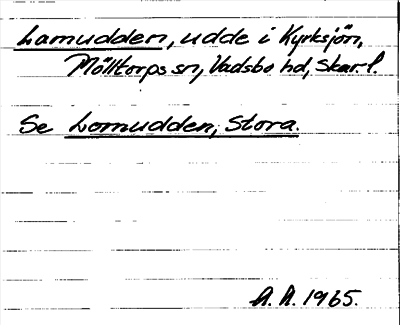 Lamudden, udde i Kyrksjön,
Mölltorps sn, Vadsbo hd, Skar. l.
Se Lomudden, Stora.
A. A. 1965.